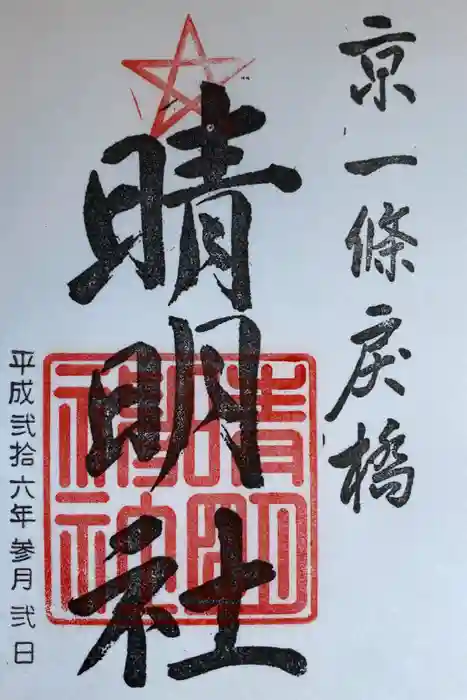 京一條戻橋
晴明社
晴明神社
平成弐拾六年参月弐日